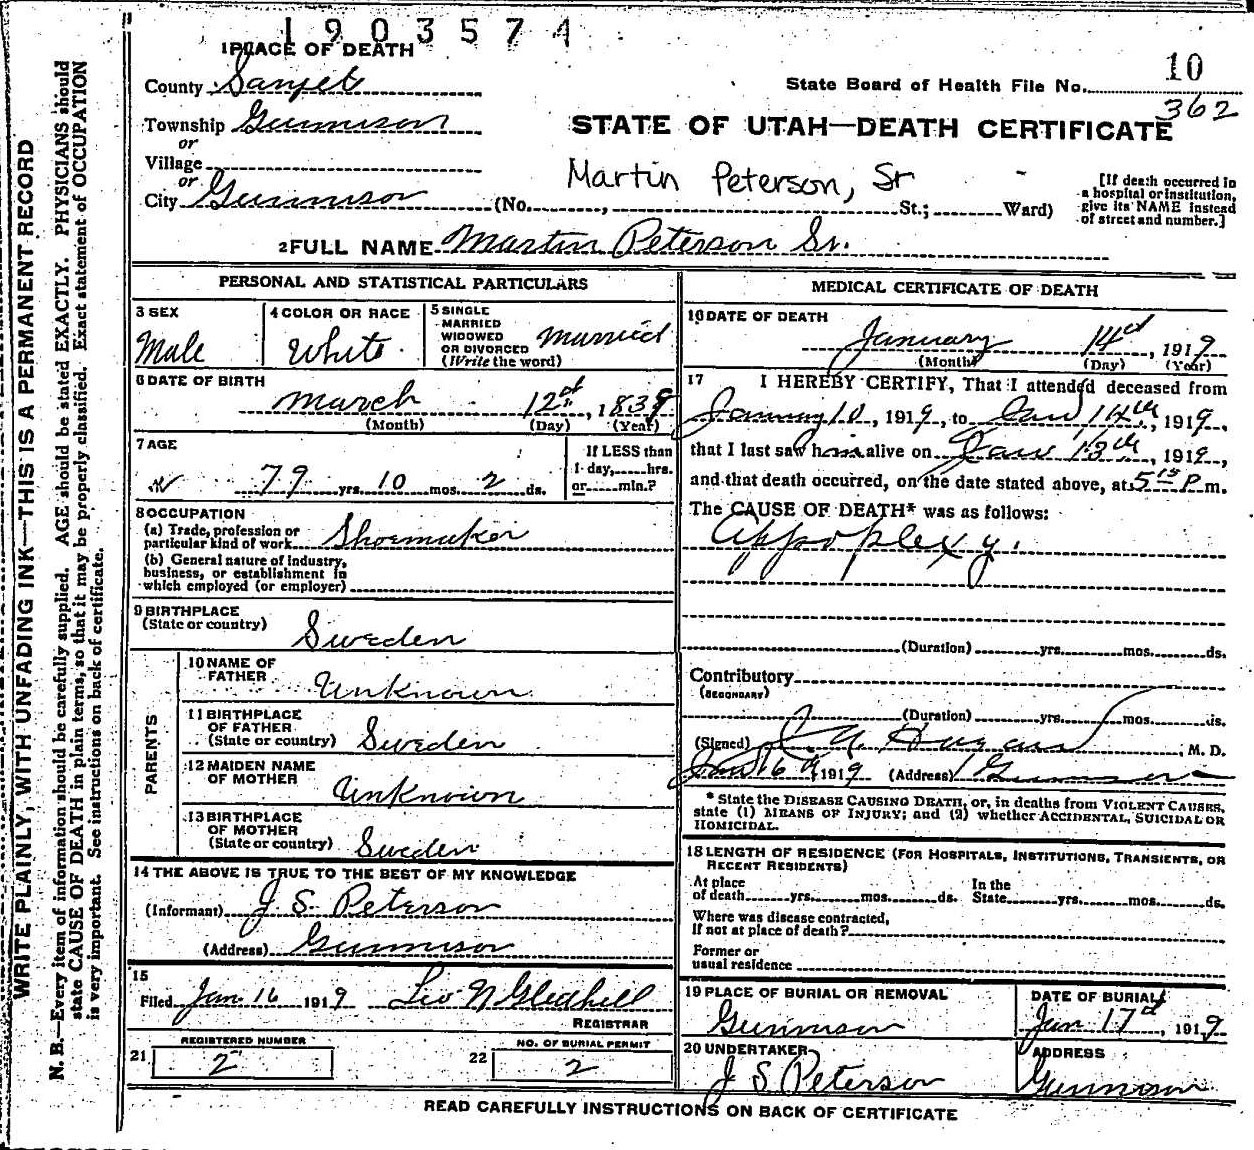 1903574
1 PLACE OF DEATH
County Sanpete
State Board of Health File No. 10
362
Township Gunnison
STATE OF UTAH—DEATH CERTIFICATE
or
Village
or
Martin Peterson, Sr
City Gunnison (No. , St.; Ward)
[If death occurred in
a hospital or institution,
give its NAME instead
of street and number.]
2 FULL NAME Martin Peterson Sr.
PERSONAL AND STATISTICAL PARTICULARS
3 SEX
Male
4 COLOR OR RACE
White
5 SINGLE
MARRIED
WIDOWED
OR DIVORCED
(Write the word)
Married
6 DATE OF BIRTH
March 12th, 1839
(Month) (Day) (Year)
7 AGE
79 yrs. 10 mos. 2 ds.
If LESS than
1 day, hrs.
or min.?
8 OCCUPATION
(a) Trade, profession or
particular kind of work Shoemaker
(b) General nature of industry,
business, or establishment in
which employed (or employer)
9 BIRTHPLACE
(State or country)
Sweden
PARENTS
10 NAME OF
FATHER
Unknown
11 BIRTHPLACE
OF FATHER
(State or country) Sweden
12 MAIDEN NAME
OF MOTHER
Unknown
13 BIRTHPLACE
OF MOTHER
(State or country) Sweden
14 THE ABOVE IS TRUE TO THE BEST OF MY KNOWLEDGE
(Informant) J. S. Peterson
(Address) Gunnison
15
Filed Jan 16 1919 Leo N Gledhill
REGISTRAR
21 REGISTERED NUMBER
2
22 NO. OF BURIAL PERMIT
2
MEDICAL CERTIFICATE OF DEATH
16 DATE OF DEATH
January 14th, 1919
(Month) (Day) (Year)
17 I HEREBY CERTIFY, That I attended deceased from
January 10, 1919, to Jan 14th, 1919,
that I last saw him alive on Jan 13th, 1919,
and that death occurred, on the date stated above, at 5 15 P m.
The CAUSE OF DEATH* was as follows:
Appoplexy.
(Duration) yrs. mos. ds.
Contributory
(SECONDARY)
(Duration) yrs. mos. ds.
(Signed) M. D.
Jan 16, 1919 (Address) Gunnison
* State the DISEASE CAUSING DEATH, or, in deaths from VIOLENT CAUSES,
state (1) MEANS OF INJURY; and (2) whether ACCIDENTAL, SUICIDAL OR
HOMICIDAL.
18 LENGTH OF RESIDENCE (FOR HOSPITALS, INSTITUTIONS, TRANSIENTS, OR
RECENT RESIDENTS)
At place
of death yrs. mos. ds.
In the
State yrs. mos. ds.
Where was disease contracted,
If not at place of death?
Former or
usual residence
19 PLACE OF BURIAL OR REMOVAL
Gunnison
DATE OF BURIAL
Jan 17th, 1919
20 UNDERTAKER
J S Peterson
ADDRESS
Gunnison
READ CAREFULLY INSTRUCTIONS ON BACK OF CERTIFICATE
WRITE PLAINLY, WITH UNFADING INK—THIS IS A PERMANENT RECORD
N. B.—Every item of information should be carefully supplied. AGE should be stated EXACTLY. PHYSICIANS should
state CAUSE OF DEATH in plain terms, so that it may be properly classified. Exact statement of OCCUPATION
is very important. See instructions on back of certificate.